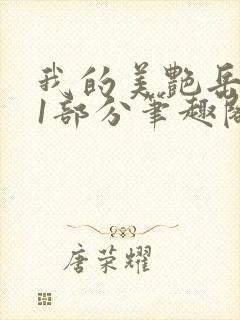 我的美艷岳
1部分笔趣阁
唐荣耀